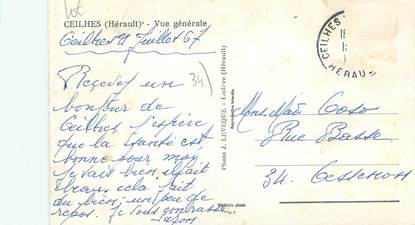 CEILHES (Hérault) - Vue générale
Ceilhes 4 Juillet 67
Recevez un
bonjour de
Ceilhes j'espère
que la santé est
bonne pour moi
je vais bien il fait
beau cela fait
du bien un peu de
repos. Je vous embrasse
34
Photo J. LIVEQUE - Lodève (Hérault)
Reproduction interdite
Véritable photo
CEILHES
HERAU
Rue Basse
34. Cessenon